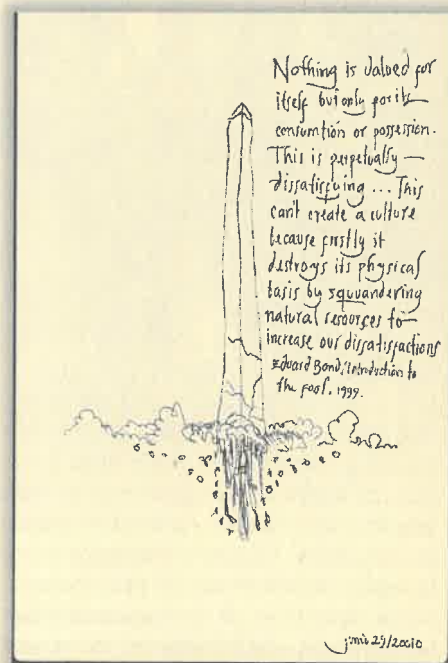 Nothing is valued for
itself but only for its
consumtion or possession.
This is perpetually
dissatisfying ... This
can't create a culture
because firstly it
destroys its physical
basis by squuandering
natural resources to
increase our dissatisfactions
Edward Bond, introduction to
the fool. 1999.
29/20010